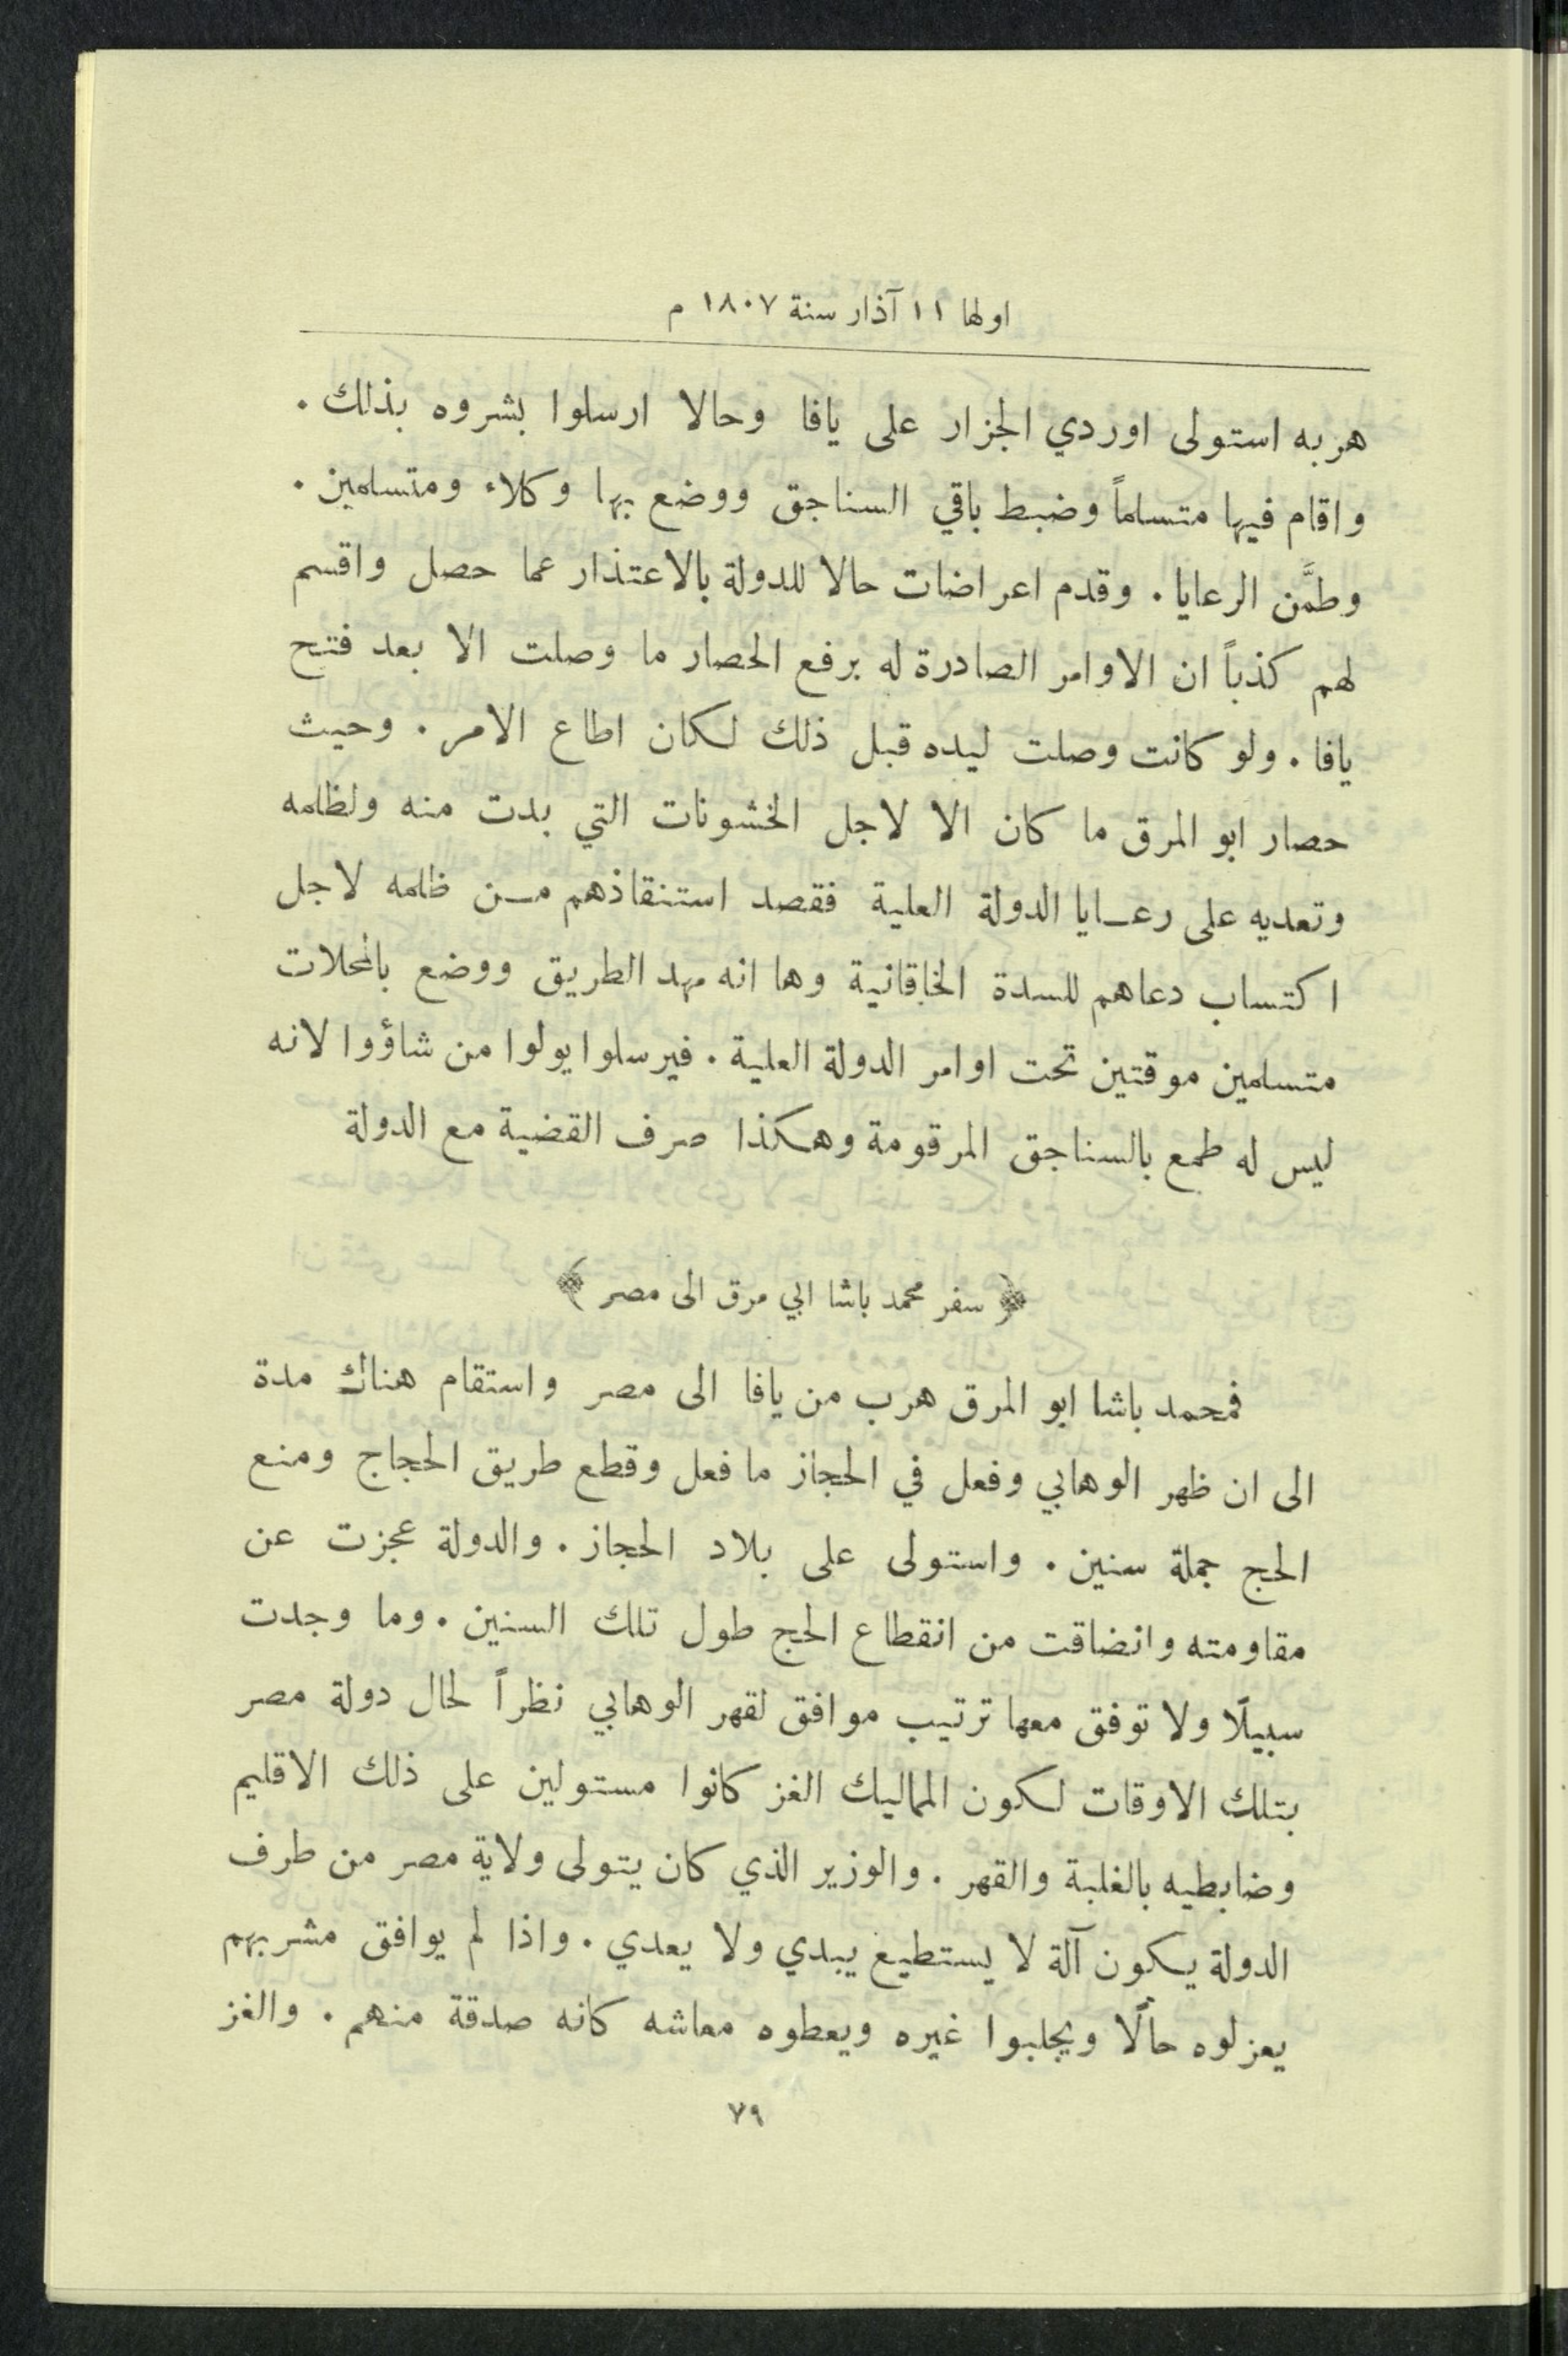 اولها ١١ آذار سنة ١٨٠٧ م
هربه استولى اوردي الجزار على يافا وحالا ارسلوا بشروه بذلك .
واقام فيها متسلماً وضبط باقي السناجق ووضع بها وكلاء ومتسلمين .
وطمَّن الرعايا . وقدم اعراضات حالا للدولة بالاعتذار عما حصل واقسم
لهم كذباً ان الاوامر الصادرة له برفع الحصار ما وصلت الا بعد فتح
يافا . ولو كانت وصلت ليده قبل ذلك لكان اطاع الامر . وحيث
حصار ابو المرق ما كان الا لاجل الخشونات التي بدت منه ولظلمه
وتعديه على رعــايا الدولة العلية فقصد استنقاذهم مــن ظلمه لاجل
اكتساب دعاهم للسدة الخاقانية وها انه مهد الطريق ووضع بالمحلات
متسلمين موقتين تحت اوامر الدولة العلية . فيرسلوا يولوا من شاؤوا لانه
ليس له طمع بالسناجق المرقومة وهكذا صرف القضية مع الدولة
﴿ سفر محمد باشا ابي مرق الى مصر ﴾
فمحمد باشا ابو المرق هرب من يافا الى مصر واستقام هناك مدة
الى ان ظهر الوهابي وفعل في الحجاز ما فعل وقطع طريق الحجاج ومنع
الحج جملة سنين . واستولى على بلاد الحجاز . والدولة عجزت عن
مقاومته وانضاقت من انقطاع الحج طول تلك السنين . وما وجدت
سبيلًا ولا توفق معها ترتيب موافق لقهر الوهابي نظراً لحال دولة مصر
بتلك الاوقات لكون المماليك الغز كانوا مستولين على ذلك الاقليم
وضابطيه بالغلبة والقهر . والوزير الذي كان يتولى ولاية مصر من طرف
الدولة يكون آلة لا يستطيع يبدي ولا يعدي . واذا لم يوافق مشربهم
يعزلوه حالًا ويجلبوا غيره ويعطوه معاشه كانه صدقة منهم . والغز
٧٩